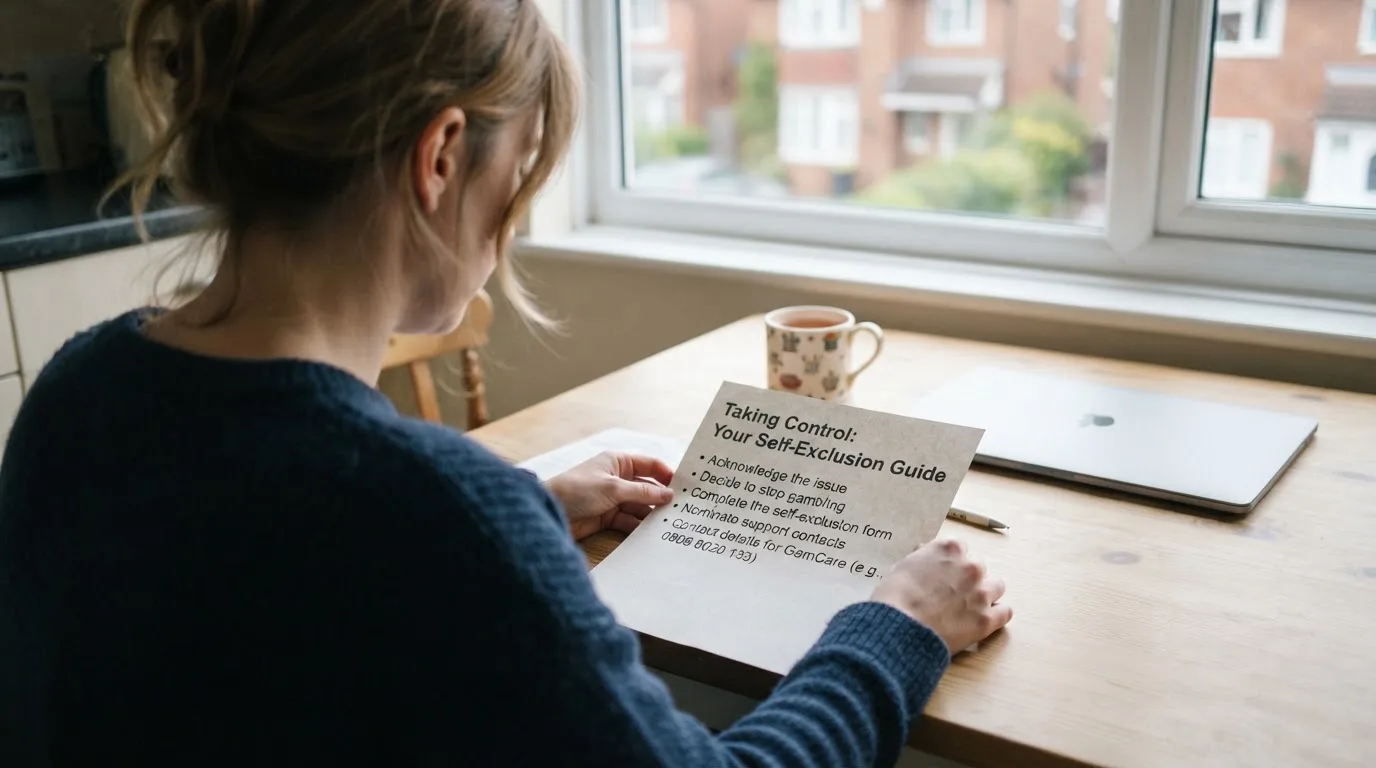 Taking Control:
Your Self-Exclusion Guide
• Acknowledge the issue
• Decide to stop gambling
• Complete the self-exclusion form
• Nominate support contacts
• Contact details for GamCare (e.g.,
0808 8020 133)